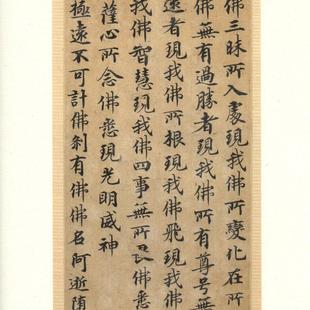 佛三昧所入處現我佛所變化在所
佛無有過勝者現我佛所有尊号無
遠者現我佛所根現我佛飛現我
我佛智慧現我佛四事無所畏佛悉
薩心所念佛悉現光明威神
極遠不可計佛刹有佛佛名阿逝墮